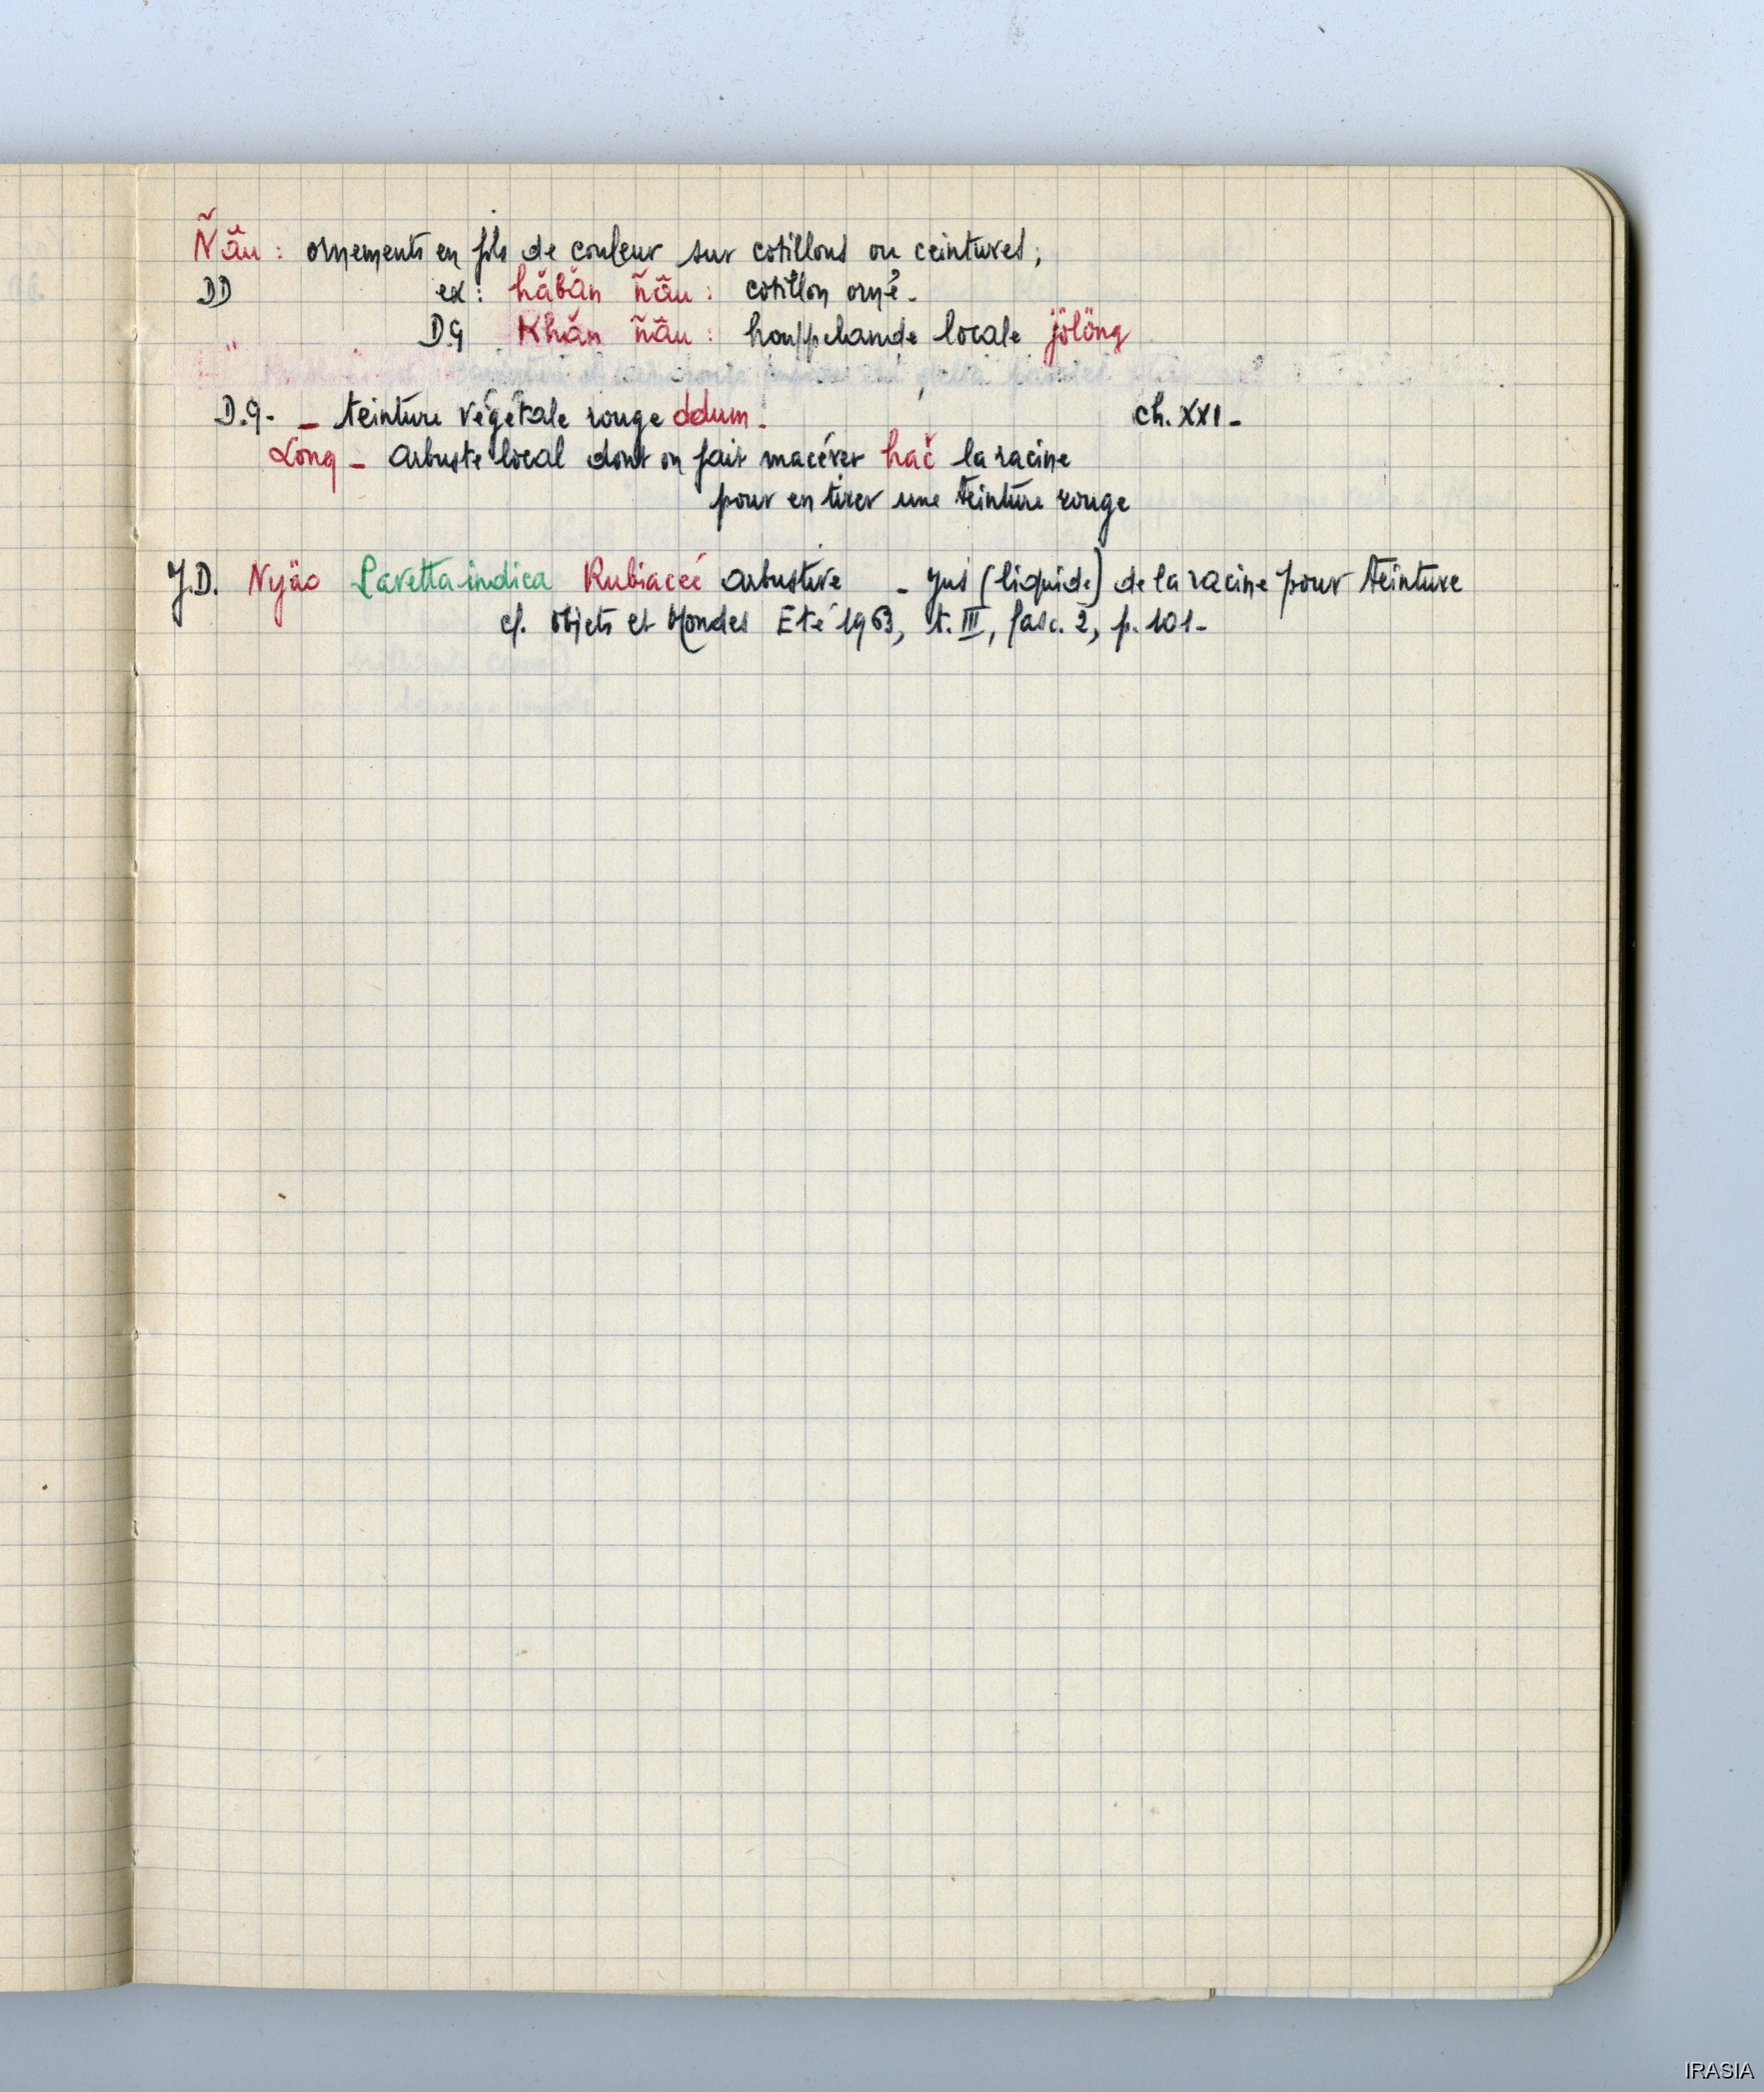 Ñãu : ornements en fils de couleur sur cotillons ou ceintures ;
DD ex : hăbăn ñãu : cotillon orné -
D.G Khăn ñãu : houppelande locale jölöng
D.G. - - teinture végétale rouge ddum - ch. XXI -
Long - arbuste local dont on fait macérer hač la racine
pour en tirer une teinture rouge
J.D. Nyäo Pavetta indica Rubiaceé arbustive - jus (liquide) de la racine pour teinture
cf. Objets et Mondes Eté 1963, t. III, fasc. 2, p. 101 -
IRASIA